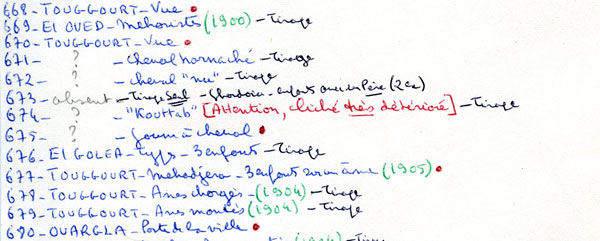 668 - TOUGGOURT - Vue •
669 - El OUED - Mehoristes (1900) - Tirage
670 - TOUGGOURT - Vue •
671 - ? - cheval harnaché - Tirage
672 - ? - cheval "nu" - Tirage
673 - absent - Tirage Seul - Ghardaïa - enfants avec un Père (2ex)
674 - ? - "Kouttab" [Attention, cliché très détérioré] - Tirage
675 - ? - Goum à cheval •
676 - El GOLEA - types - 3 enfants - Tirage
677 - TOUGGOURT - Mehadjera - 3 enfants sur un âne (1905) •
678 - TOUGGOURT - Anes chargés - (1904) - Tirage
679 - TOUGGOURT - Anes montés (1904) - Tirage
680 - OUARGLA - Porte de la ville •